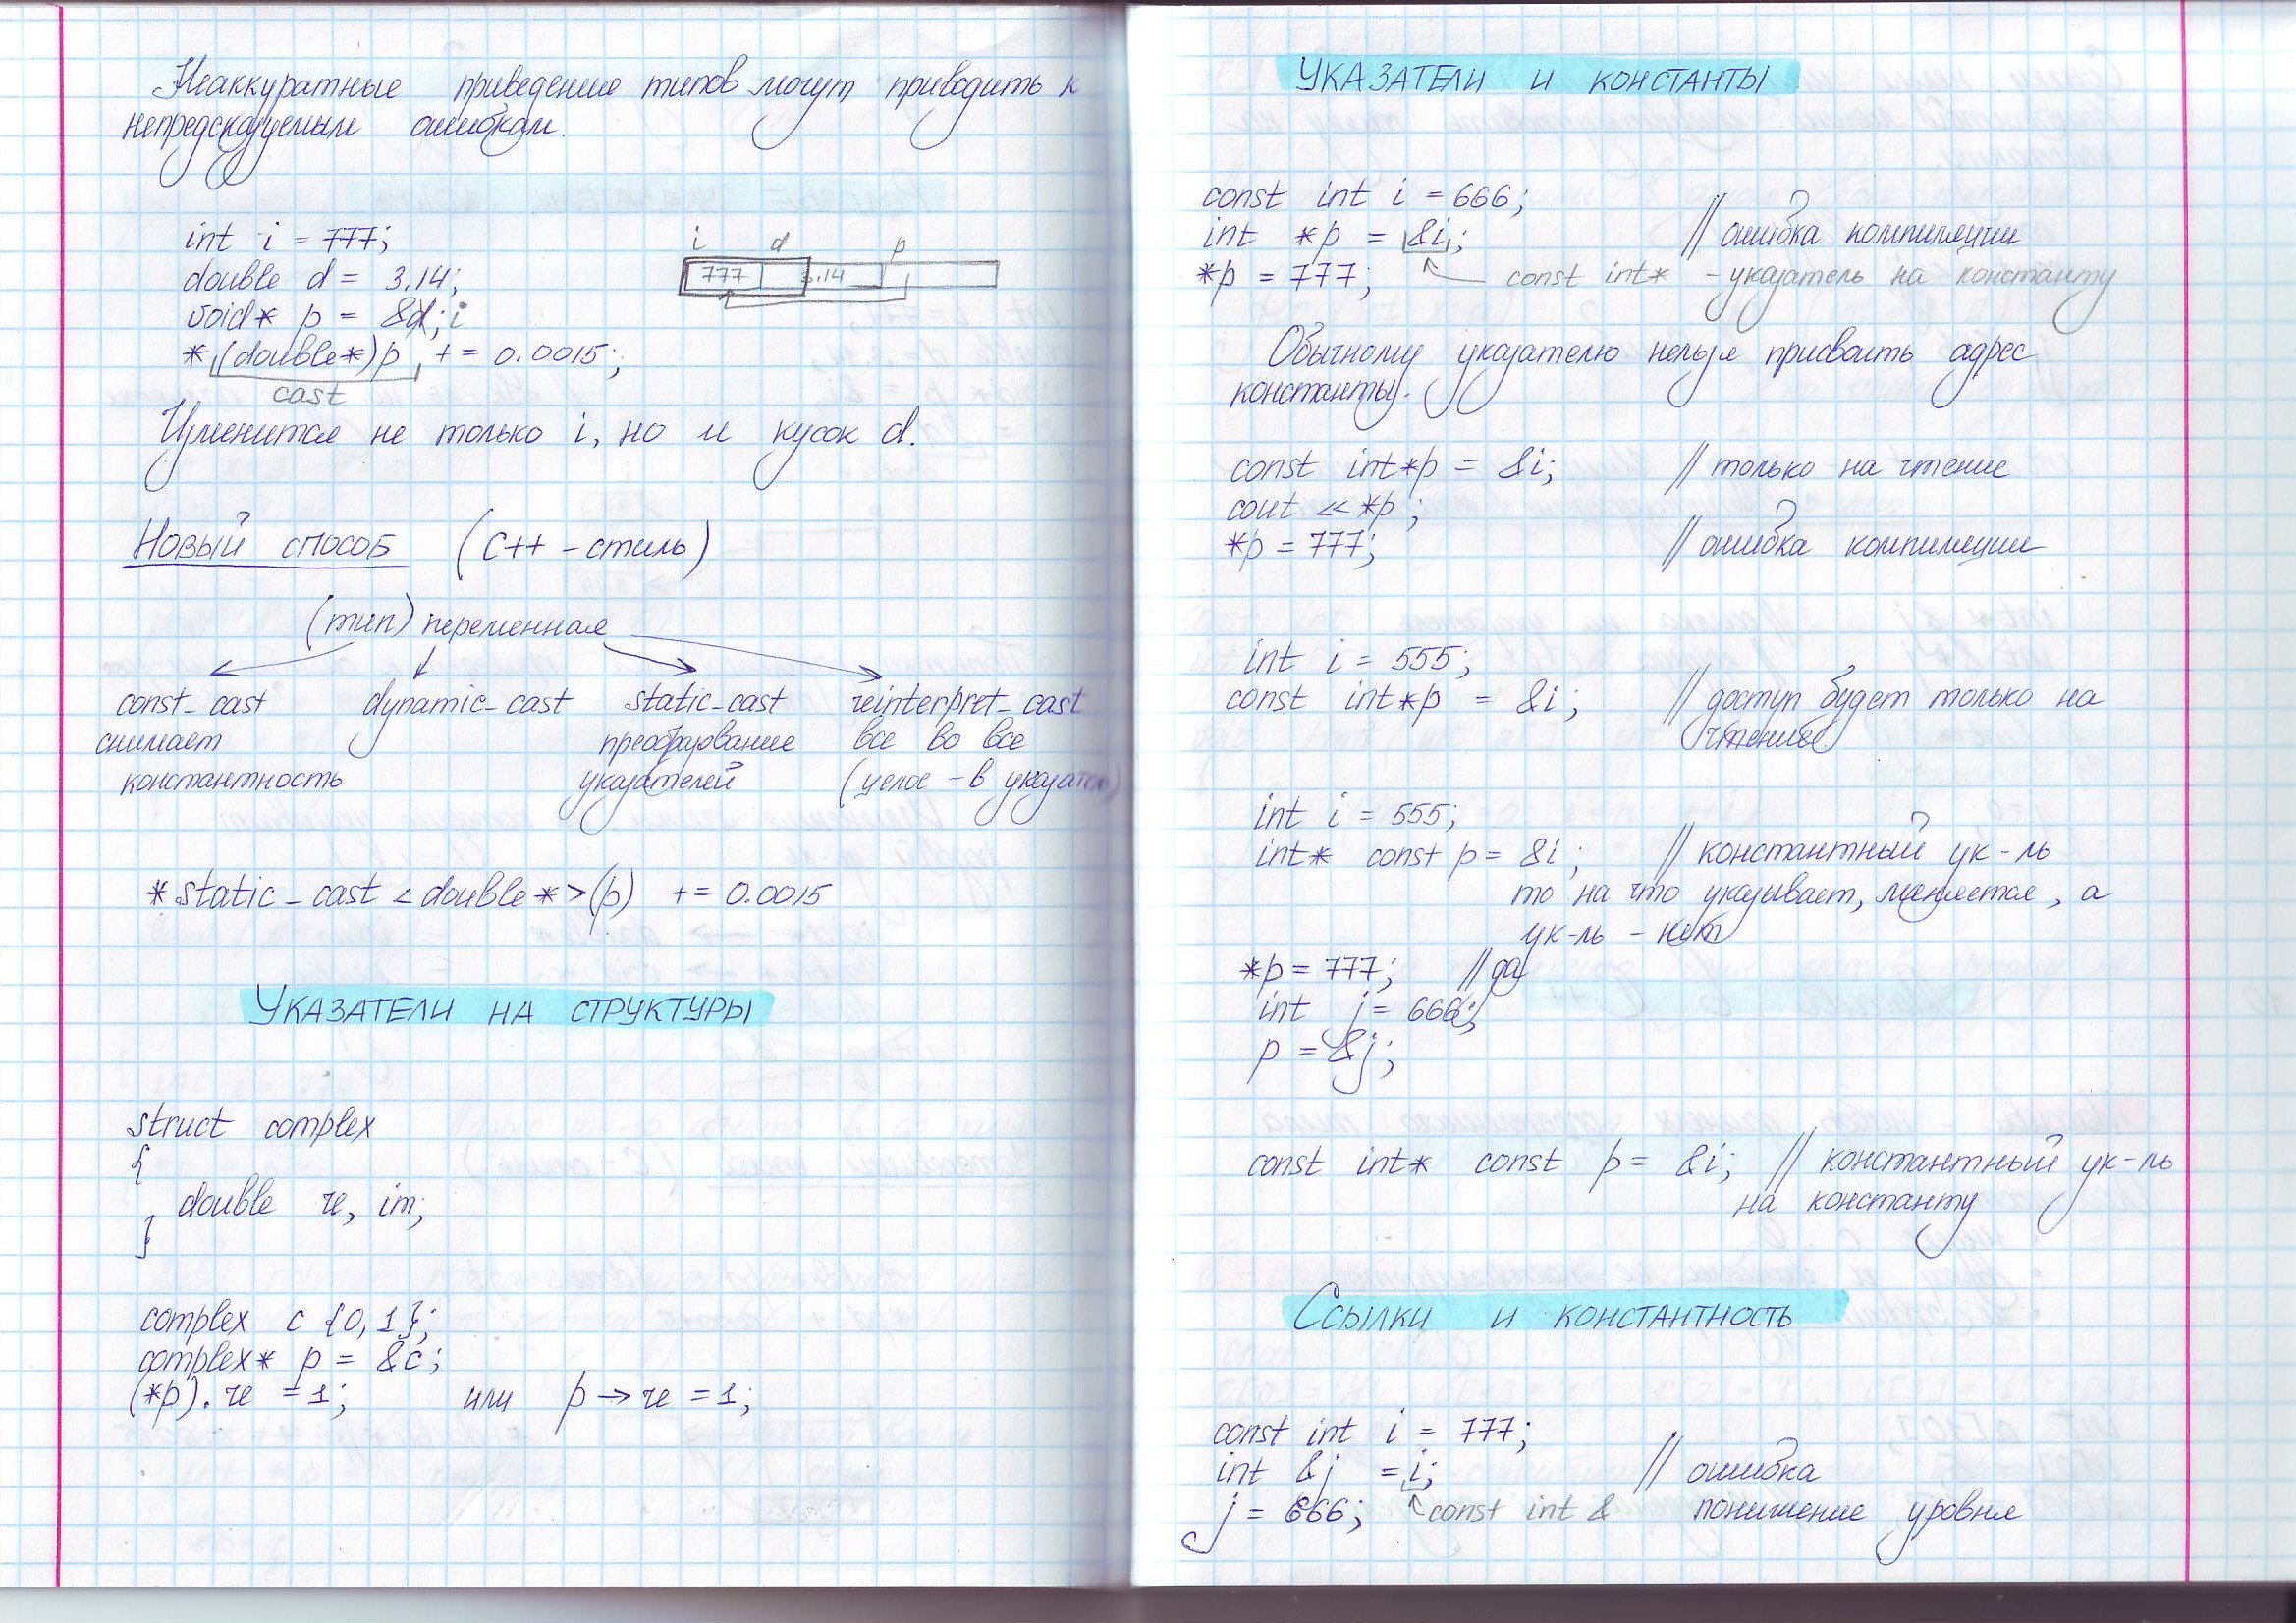 Неаккуратные приведение типов могут приводить к
непредсказуемым ошибкам.
int i = 777;
double d = 3.14;
void* p = &d; i
*(double*)p += 0.0015;
cast
i d p
777 3.14
Изменится не только i, но и кусок d.
Новый способ (C++ - стиль)
(тип) переменная
const_cast dynamic_cast static_cast reinterpret_cast
снимает преобразование все во все
константность указателей (целое - в указатель)
*static_cast <double*>(p) += 0.0015
Указатели на структуры
struct complex
{
double re, im;
}
complex c {0,1};
complex* p = &c;
(*p).re = 1; или p->re = 1;
Указатели и константы
const int i = 666;
int *p = &i; // ошибка компиляции
*p = 777; const int* - указатель на константу
Обычному указателю нельзя присвоить адрес
константы.
const int*p = &i; // только на чтение
cout << *p;
*p = 777; // ошибка компиляции
int i = 555;
const int*p = &i; // доступ будет только на
чтение
int i = 555;
int* const p = &i; // константный ук-ль
то на что указывает, меняется, а
ук-ль - нет
*p = 777; // да
int j = 666;
p = &j;
const int* const p = &i; // константный ук-ль
на константу
Ссылки и константность
const int i = 777;
int &j = i; // ошибка
j = 666; const int & понижение уровня